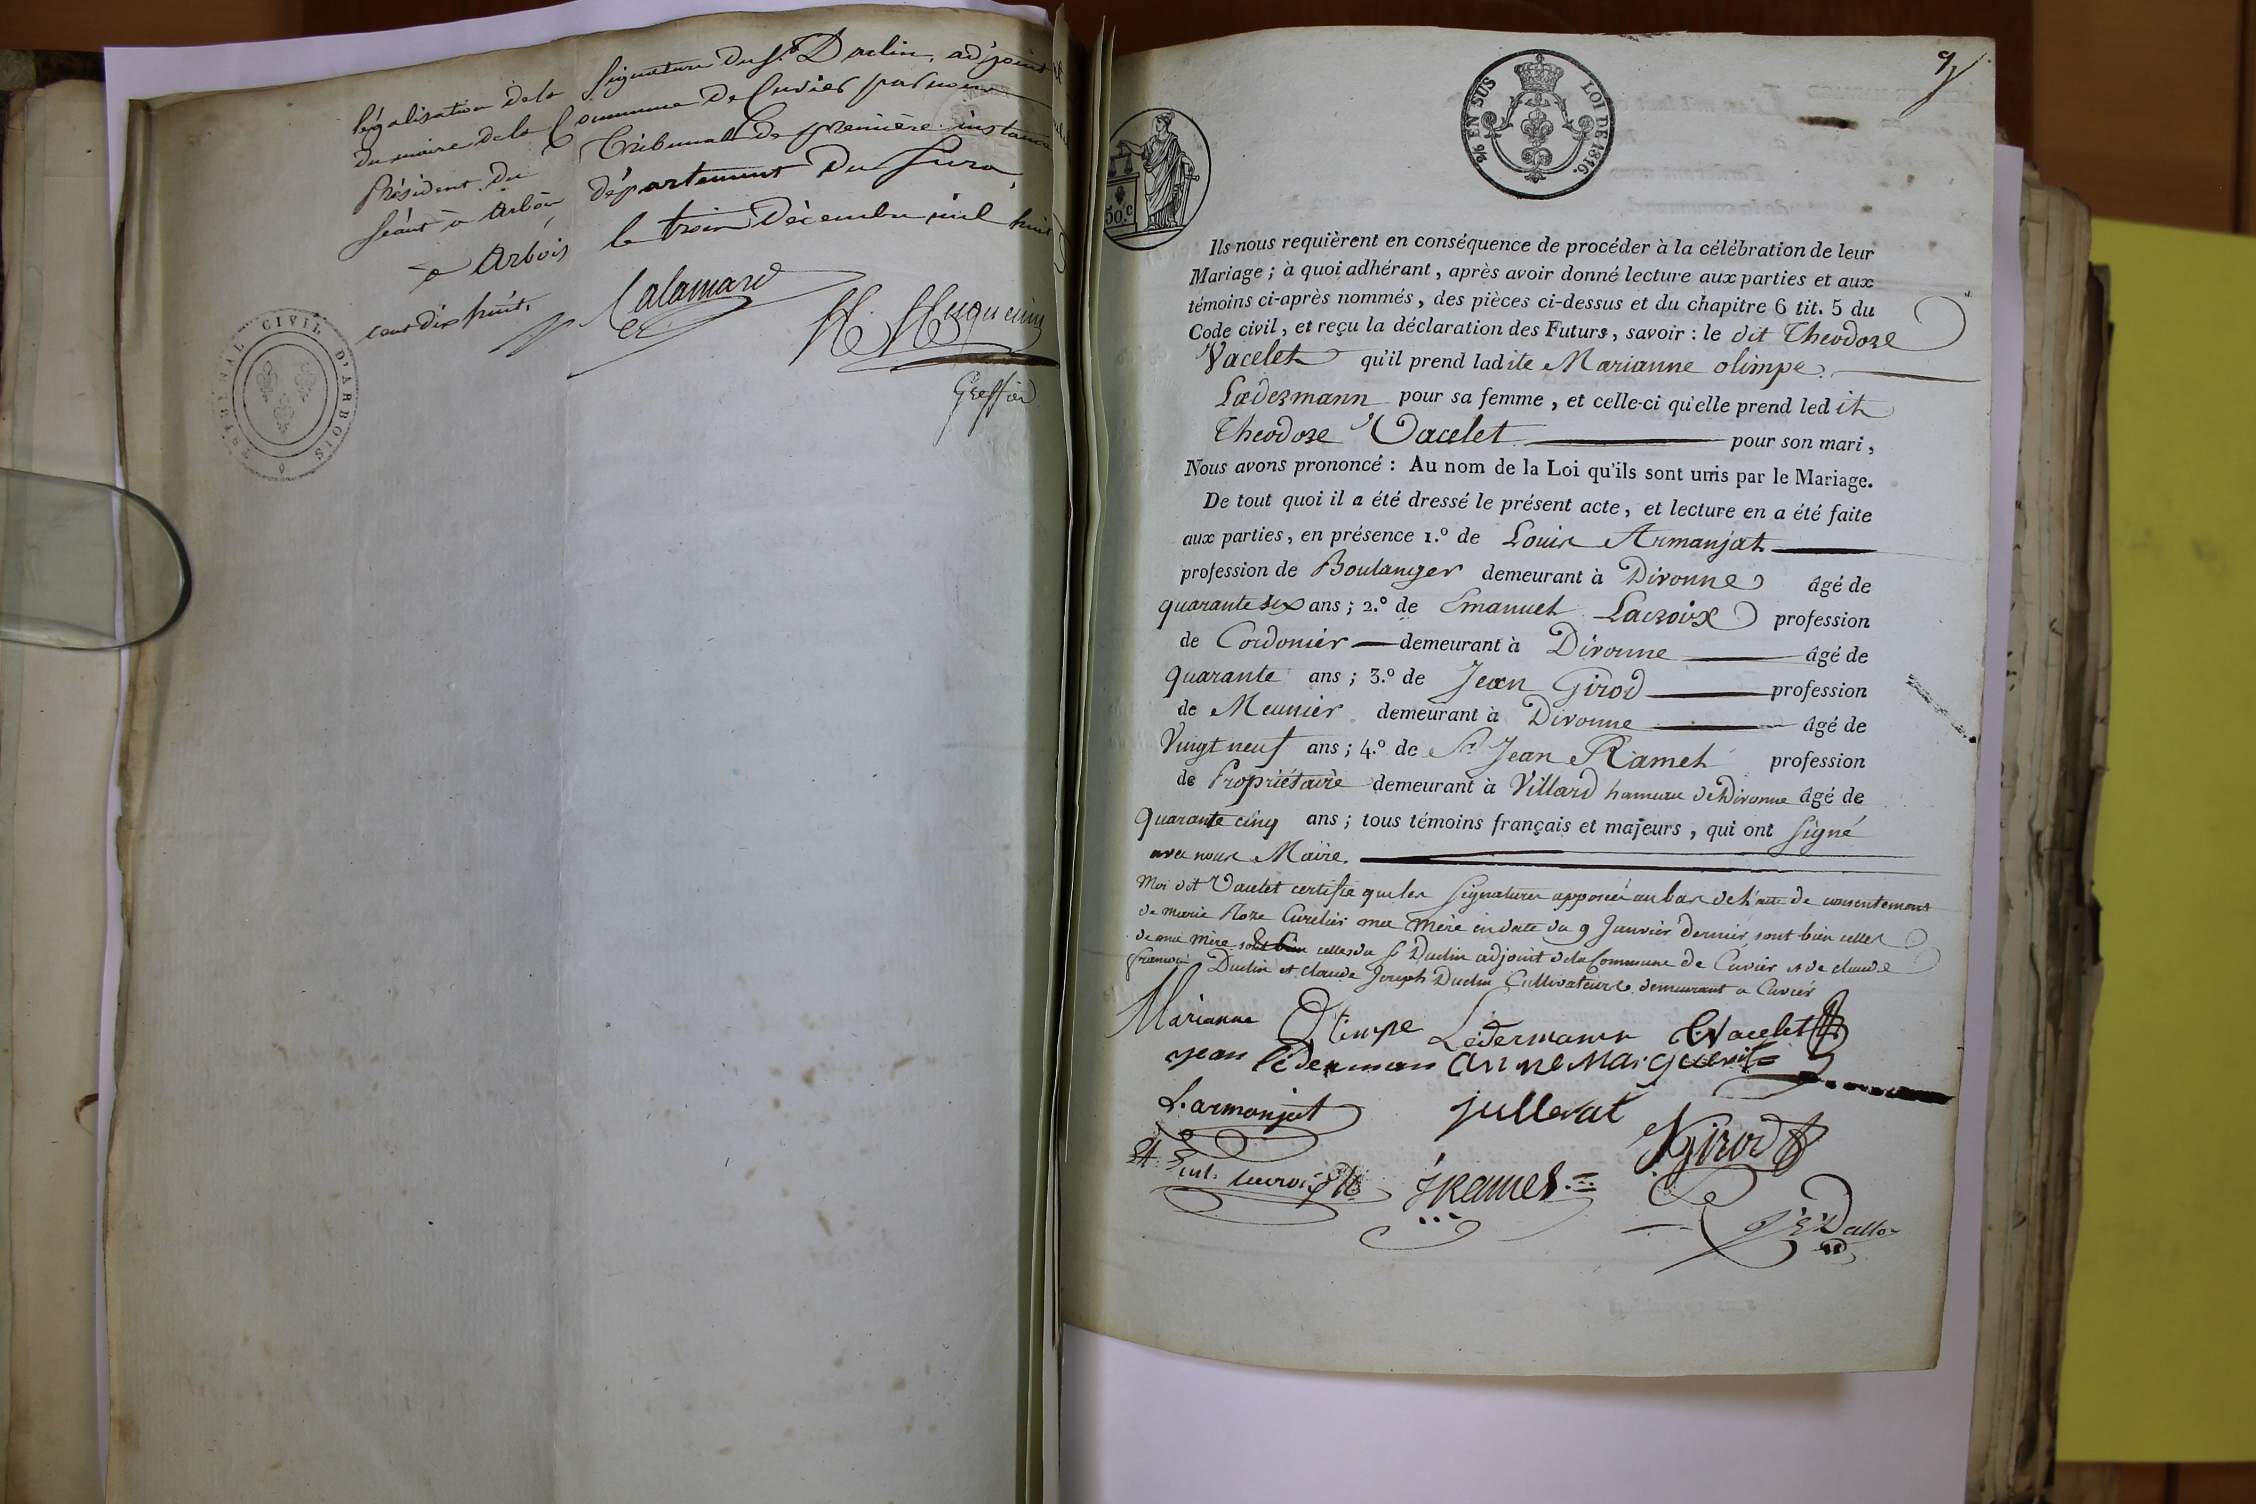 légalisation dela signature du Sr. Duclin, adjoint
du maire dela Commune de Cuvier par nous
Président du Tribunal de première instance
séant à Arbois département du Jura,
a Arbois le trois Décembre mil huit
cent dix huit,
H. Huguenin
Greffier
TRIBUNAL CIVIL D'ARBOIS
9
EN SUS LOI DE 1816.
50.c
Ils nous requièrent en conséquence de procéder à la célébration de leur
Mariage ; à quoi adhérant, après avoir donné lecture aux parties et aux
témoins ci-après nommés, des pièces ci-dessus et du chapitre 6 tit. 5 du
Code civil, et reçu la déclaration des Futurs, savoir : le dit Theodore
Vacelet qu'il prend ladite Marianne olimpe
Lædermann pour sa femme, et celle-ci qu'elle prend ledit
Theodore Vacelet pour son mari,
Nous avons prononcé : Au nom de la Loi qu'ils sont unis par le Mariage.
De tout quoi il a été dressé le présent acte, et lecture en a été faite
aux parties, en présence 1.º de Louis Armanjat
profession de Boulanger demeurant à Divonne âgé de
quarante six ans ; 2.º de Emanuel Lacroix profession
de Cordonier demeurant à Divonne âgé de
quarante ans ; 3.º de Jean Girod profession
de Meunier demeurant à Divonne âgé de
Vingt neuf ans ; 4.º de Sr. Jean Ramel profession
de Propriétaire demeurant à Villard hameau de Divonne âgé de
quarante cinq ans ; tous témoins français et majeurs, qui ont signé
avec nous Maire.
Moi dit Vacelet certifie que les signatures apposée au bas de l'acte de consentement
de marie Roze Cuvelier ma mère en date du 9 Janvier dernier, sont bien celles
de ma mère sont bien celles du Sr Duclin adjoint dela Commune de Cuvier et de claude
françois Duclin et claude Joseph Duclin Cultivateurs demeurant a Cuvier
Marianne Olimpe Ledermann Vacelet
jean lederman anne Marguerite
L. armonjat jullerat
Girod
lacroix JRamel